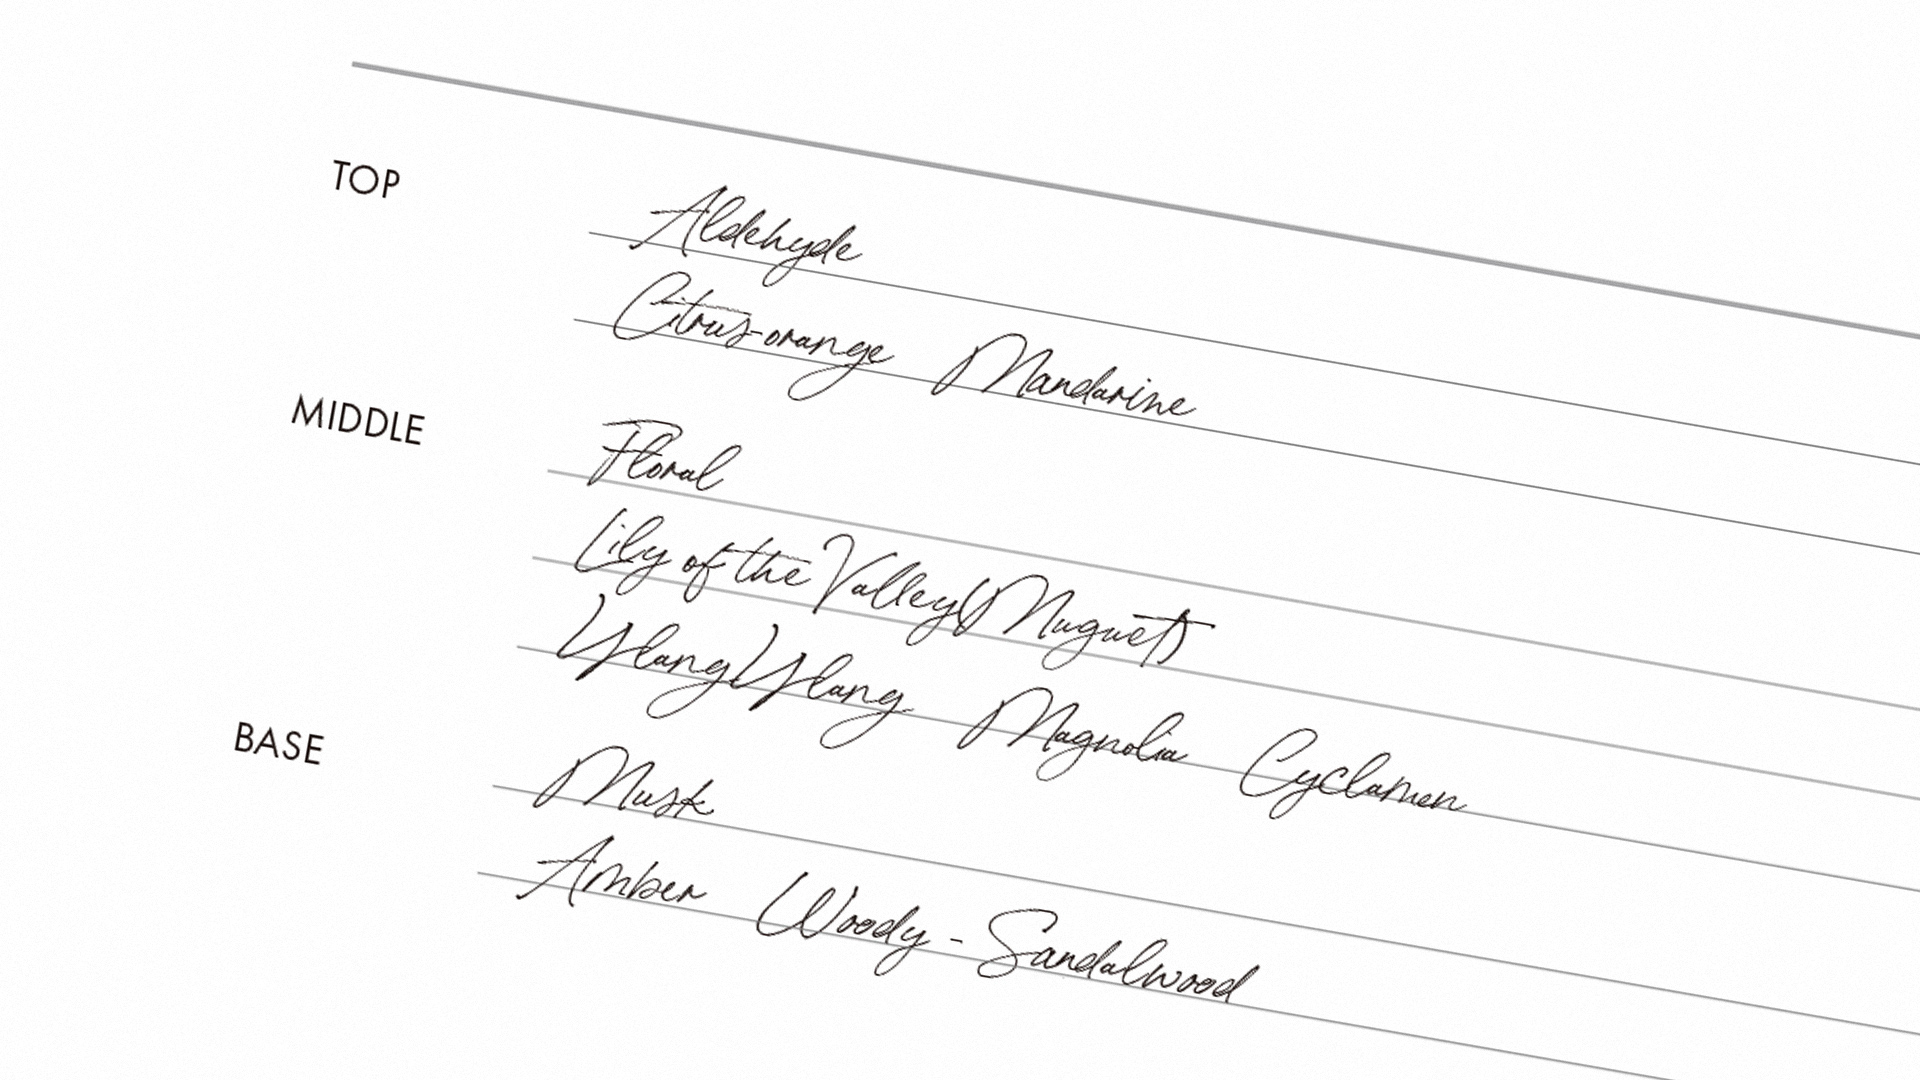 TOP
Aldehyde
Citrus-orange Mandarine
MIDDLE
Floral
Lily of the Valley(Muguet)
Ylang Ylang Magnolia Cyclamen
BASE
Musk
Amber Woody - Sandalwood